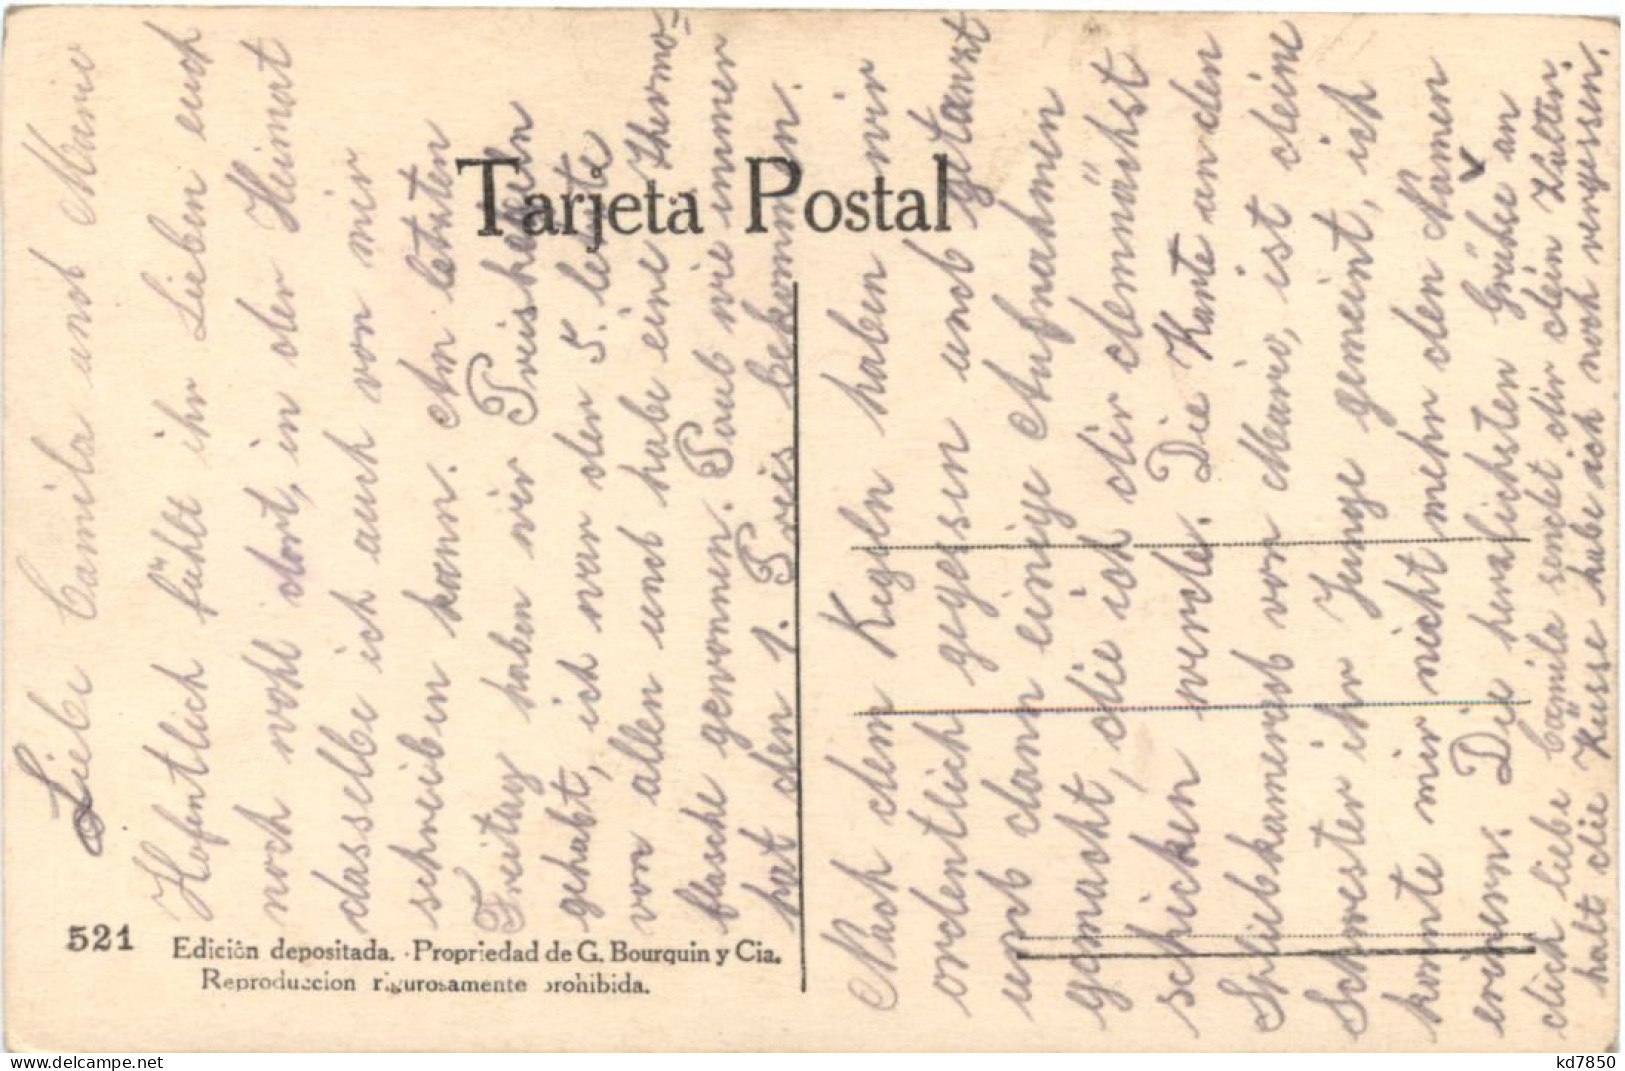 Tarjeta Postal
521
Edición depositada. - Propriedad de G. Bourquin y Cia.
Reproduccion rigurosamente prohibida.
Liebe Camila und Mario
Hofentlich fühlt ihr Lieben euch
noch wohl dort, in der Heimat
dasselbe ich auch von mir
schreiben kann. Am letzten
Freitag haben wir Preiskegeln
gehabt, ich war der 5. letzte
von allen und habe eine Thermo=
flasche gewonnen. Paul wie immer
hat den 1. Preis bekommen.
Nach dem Kegeln haben wir
ordentlich gegesen und getanzt
und dann einige Aufnahmen
gemacht, die ich dir demnächst
schicken werde. Die Karte an den
Spielkamerad von Mario, ist deine
Schwester ihr Junge gemeint, ich
konte mir nicht mehr den Namen
erinern. Die herzlichsten Grüße an
dich liebe Camila sendet dir dein Walter.
halt die Küsse habe ich noch vergessen.
kd7850